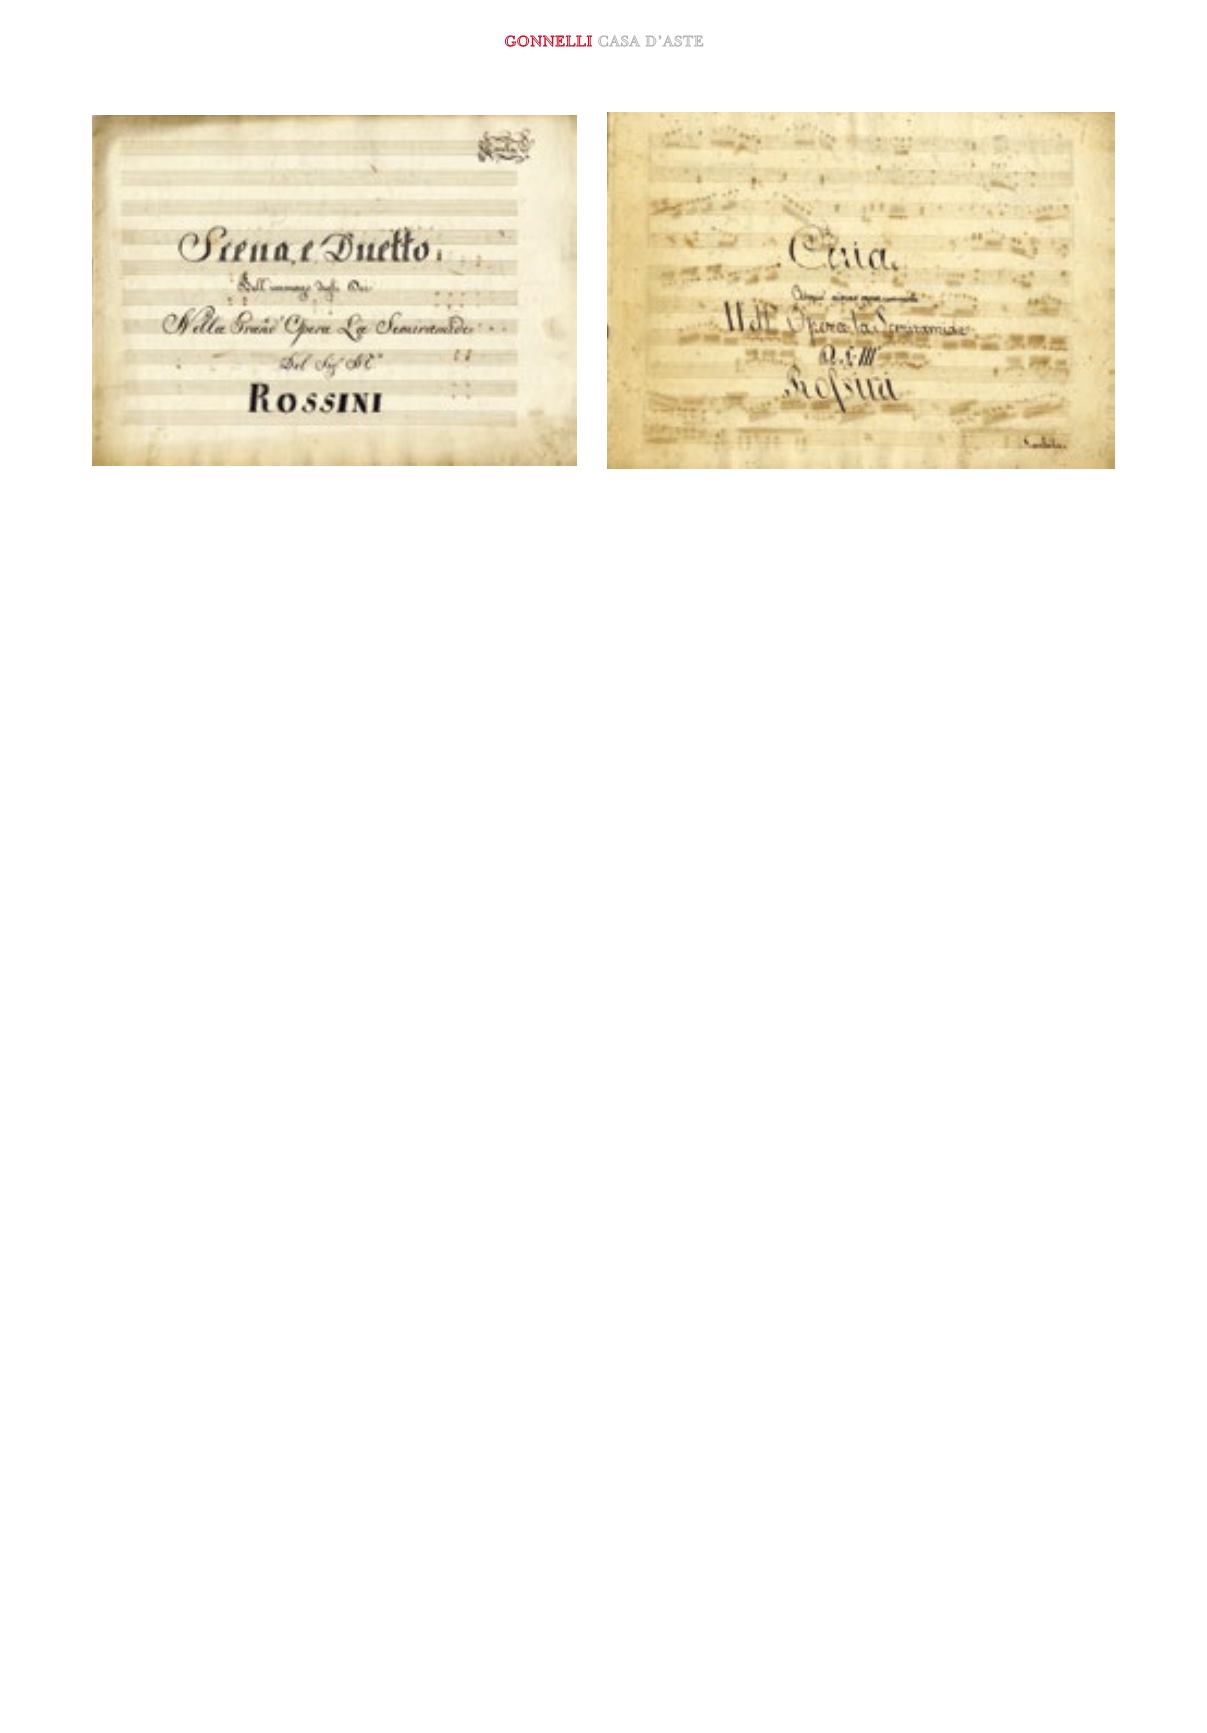 GONNELLI CASA D'ASTE
Scena, e Duetto.
degli Dei
Nella Grand' Opera La Semiramide
Del Sigr Mo
ROSSINI
Aria
Nell' Opera la Semiramide
Rossini